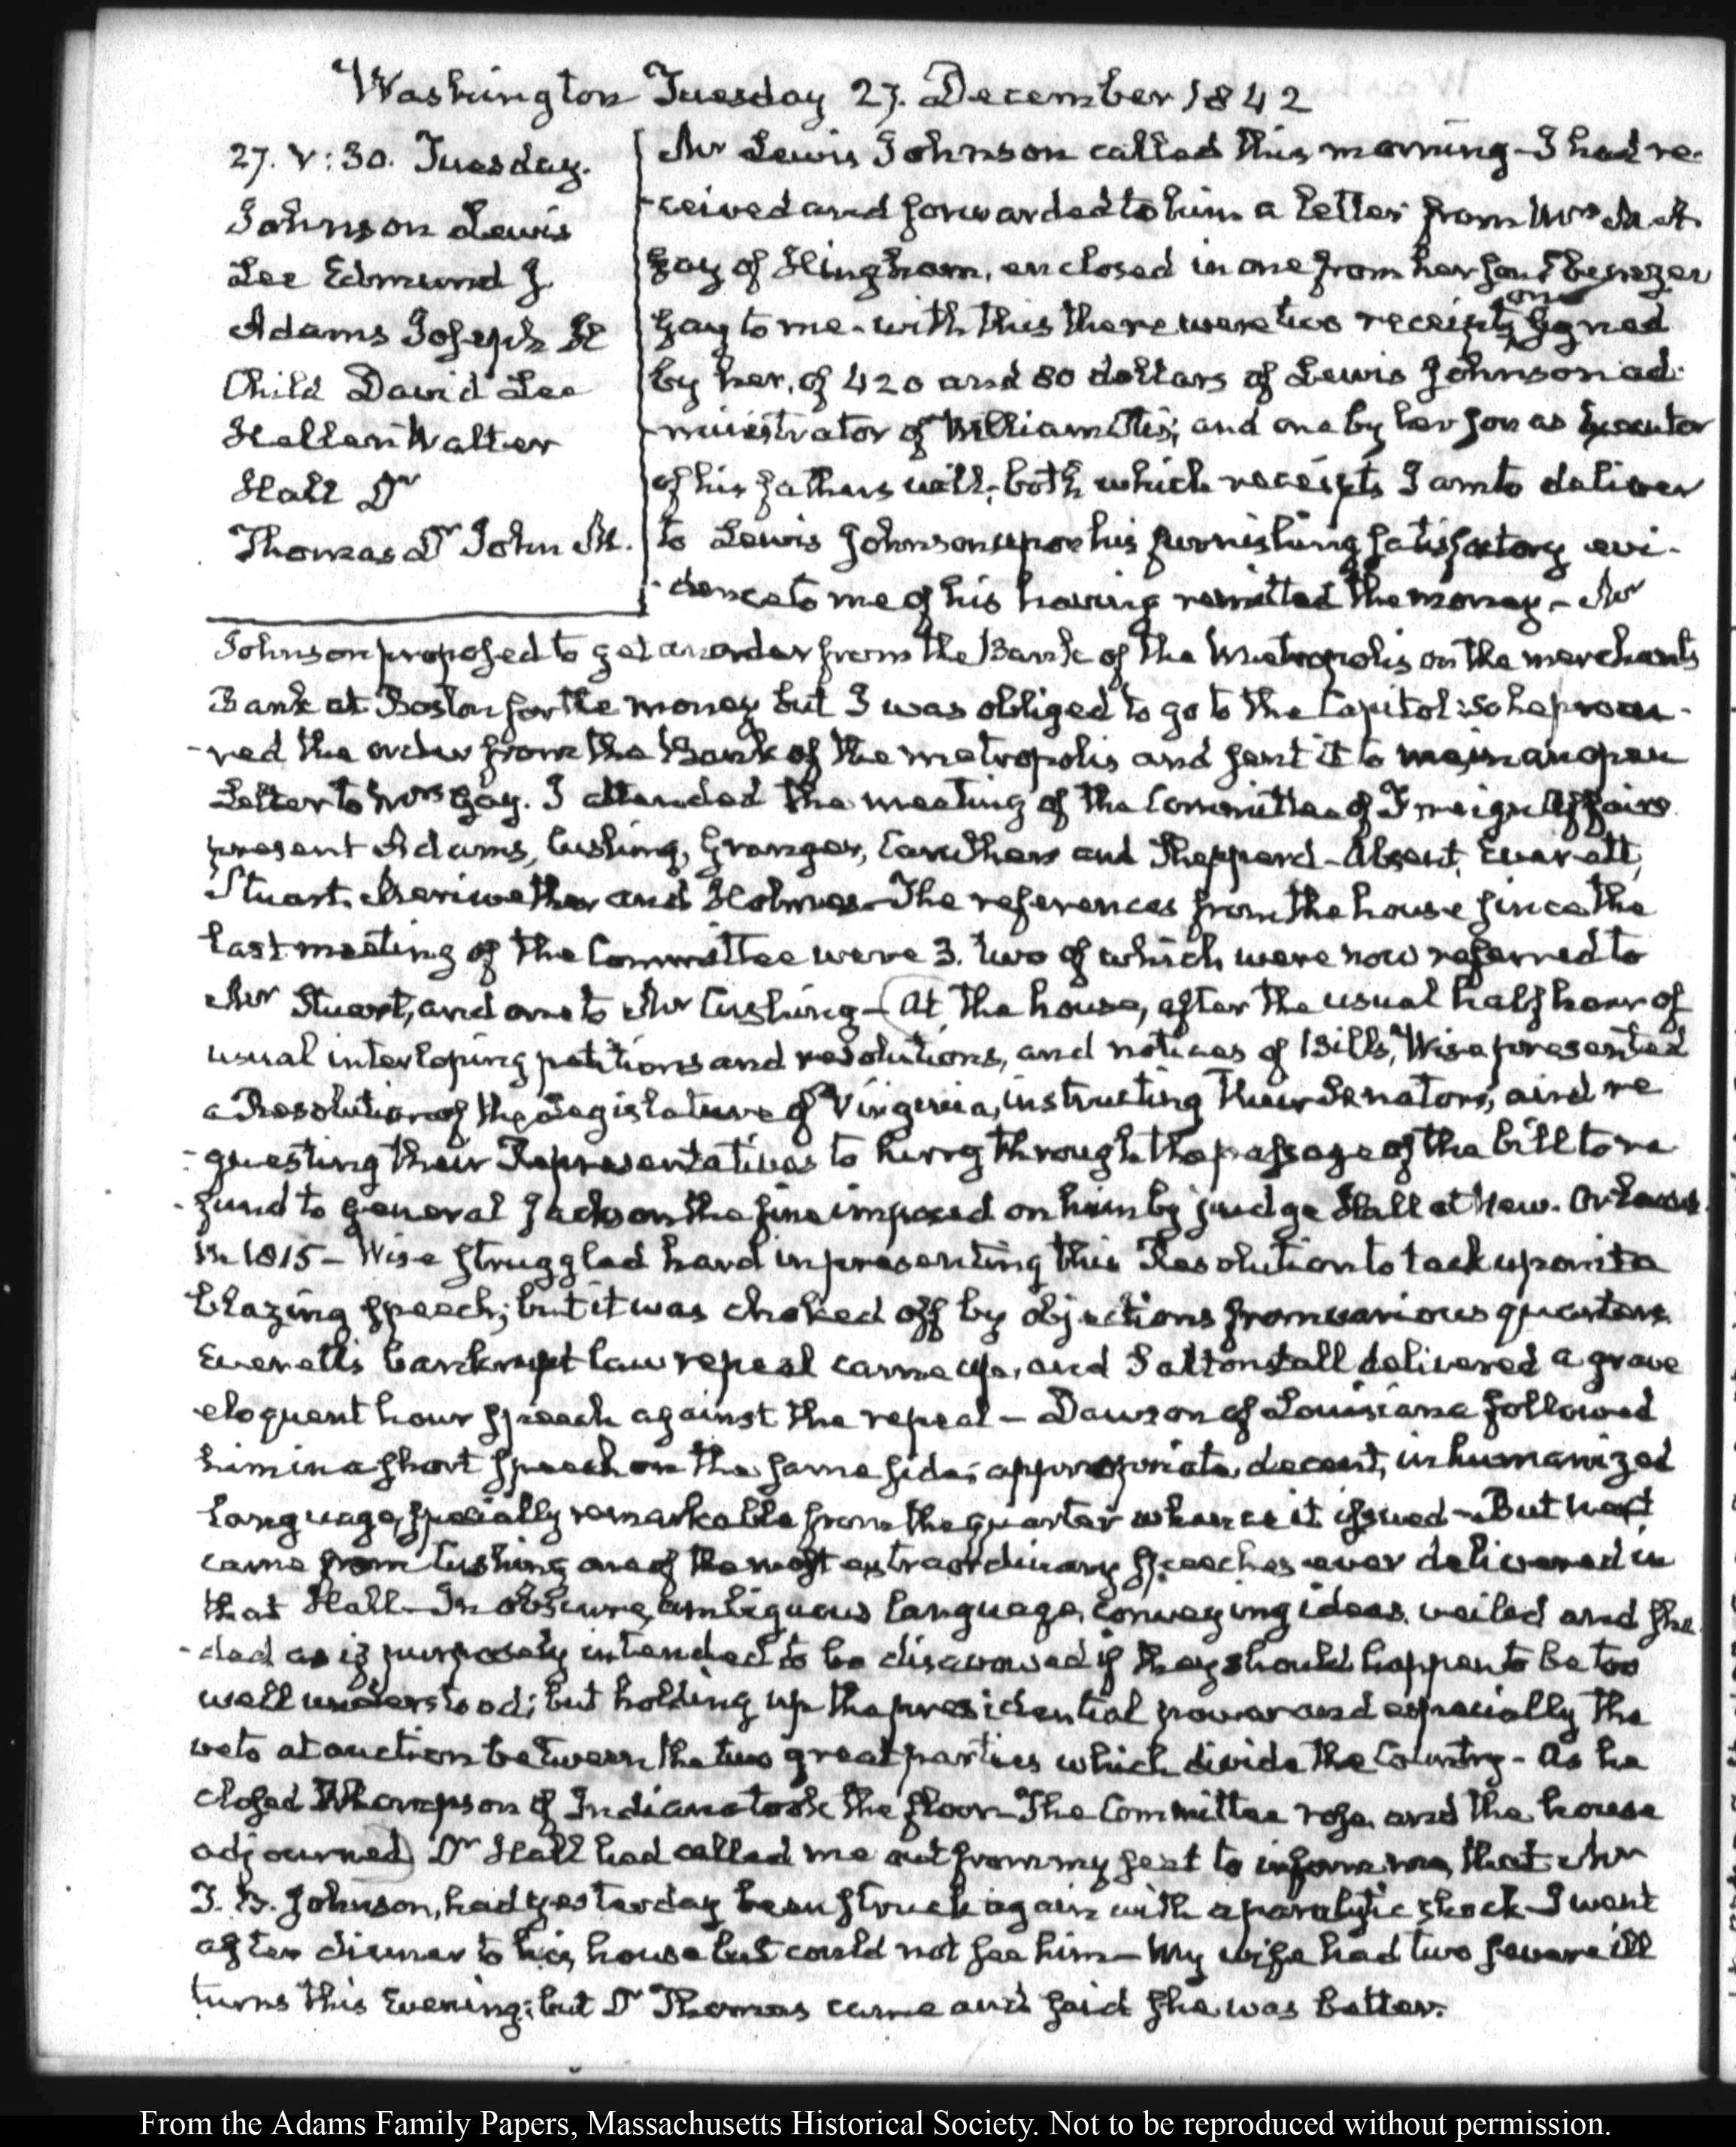 Washington Tuesday 27. December 1842
27. V:30. Tuesday.
Johnson Lewis
Lee Edmund J
Adams Joseph H
Child David Lee
Hellen Walter
Hall Dr
Thomas Dr John M.
Mr Lewis Johnson called this morning—I had re-
-ceived and forwarded to him a letter from Mrs M A.
Gay of Hingham, enclosed in one from her son Ebenezer
Gay to me—with this there were two receipts, one signed
by her, of 420 and 80 dollars of Lewis Johnson ad-
-ministrator of William Otis; and one by her son as Executor
of his father's will; both which receipts I am to deliver
to Lewis Johnson upon his furnishing satisfactory evi-
-dence to me of his having remitted the money—Mr
Johnson proposed to get an order from the Bank of the Metropolis on the merchants
Bank at Boston for the money but I was obliged to go to the Capitol: so he procu-
-red the order from the Bank of the metropolis and sent it to me, in an open
Letter to Mrs Gay. I attended the meeting of the Committee of Foreign Affairs
present Adams, Cushing, Granger, Caruthers and Shepperd—Absent, Everett,
Stuart, Meriwether and Holmes—The references from the house since the
last meeting of the Committee were 3. two of which were now referred to
Mr Stuart, and one to Mr Cushing—(At the house, after the usual half hour of
usual interloping petitions and resolutions, and notices of Bills, Wise presented
a Resolution of the Legislature of Virginia, instructing their Senators, and re
-questing their Representatives to hurry through the passage of the bill to re
-fund to General Jackson the fine imposed on him by judge Hall at New-Orleans
in 1815—Wise struggled hard in presenting this Resolution to tack upon it a
blazing speech; but it was choked off by objections from various quarters.
Everett's bankrupt law repeal came up, and Saltonstall delivered a grave
eloquent hour speech against the repeal—Dawson of Louisiana followed
him in a short speech on the same side; appropriate, decent, in humanized
language, specially remarkable from the quarter whence it issued—But next
came from Cushing one of the most extraordinary speeches ever delivered in
that Hall—In obscure, ambiguous language, conveying ideas, veiled and sha-
-ded as if purposely intended to be disavowed if they should happen to be too
well understood; but holding up the presidential power and especially the
veto at auction between the two great parties which divide the Country—As he
closed Thompson of Indiana took the floor—The Committee rose, and the house
adjourned) Dr Hall had called me out from my seat to inform me, that Mr
J. B. Johnson, had yesterday been struck again with a paralytic shock—I went
after dinner to his house but could not see him—My wife had two severe ill
turns this Evening; but Dr Thomas came and said she was better.
From the Adams Family Papers, Massachusetts Historical Society. Not to be reproduced without permission.